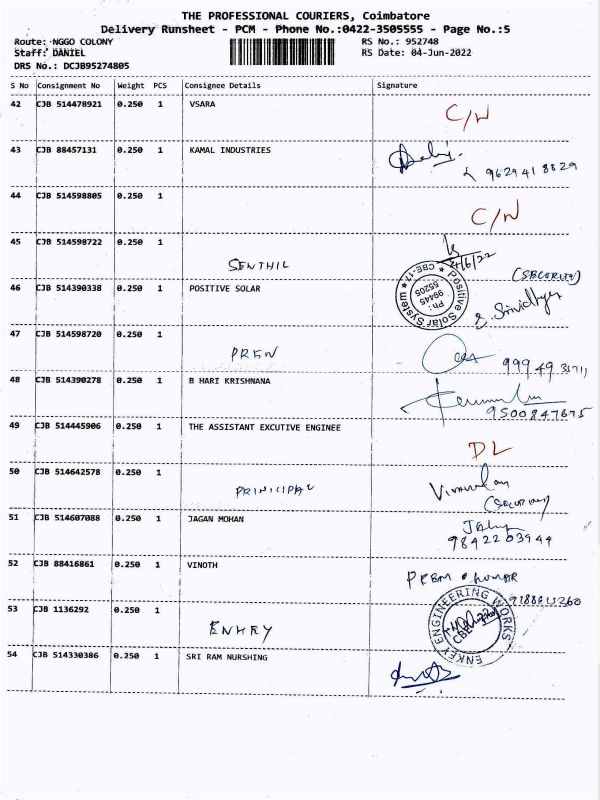 THE PROFESSIONAL COURIERS, Coimbatore
Delivery Runsheet - PCM - Phone No.:0422-3505555 - Page No.:5
Route: NGGO COLONY RS No.: 952748
Staff: DANIEL RS Date: 04-Jun-2022
DRS No.: DCJB95274805
S No Consignment No Weight PCS Consignee Details Signature
42 CJB 514478921 0.250 1 VSARA
C/N
43 CJB 88457131 0.250 1 KAMAL INDUSTRIES
9629418829
44 CJB 514598805 0.250 1
C/N
45 CJB 514598722 0.250 1
SENTHIL 4/6/22
(SECURITY)
46 CJB 514390338 0.250 1 POSITIVE SOLAR
Positive Solar System ★ CBE-17 ★
Ph: 99445 55205
47 CJB 514598720 0.250 1
PREN
48 CJB 514390278 0.250 1 B HARI KRISHNANA
9500847675
49 CJB 514445906 0.250 1 THE ASSISTANT EXCUTIVE ENGINEE
DL
50 CJB 514642578 0.250 1
PRINICIPAL
(SECURITY)
51 CJB 514607088 0.250 1 JAGAN MOHAN
9842203944
52 CJB 88416861 0.250 1 VINOTH
PREM KUMAR
53 CJB 1136292 0.250 1
ENKEY
ENKEY ENGINEERING WORKS
CBE
54 CJB 514330386 0.250 1 SRI RAM NURSHING